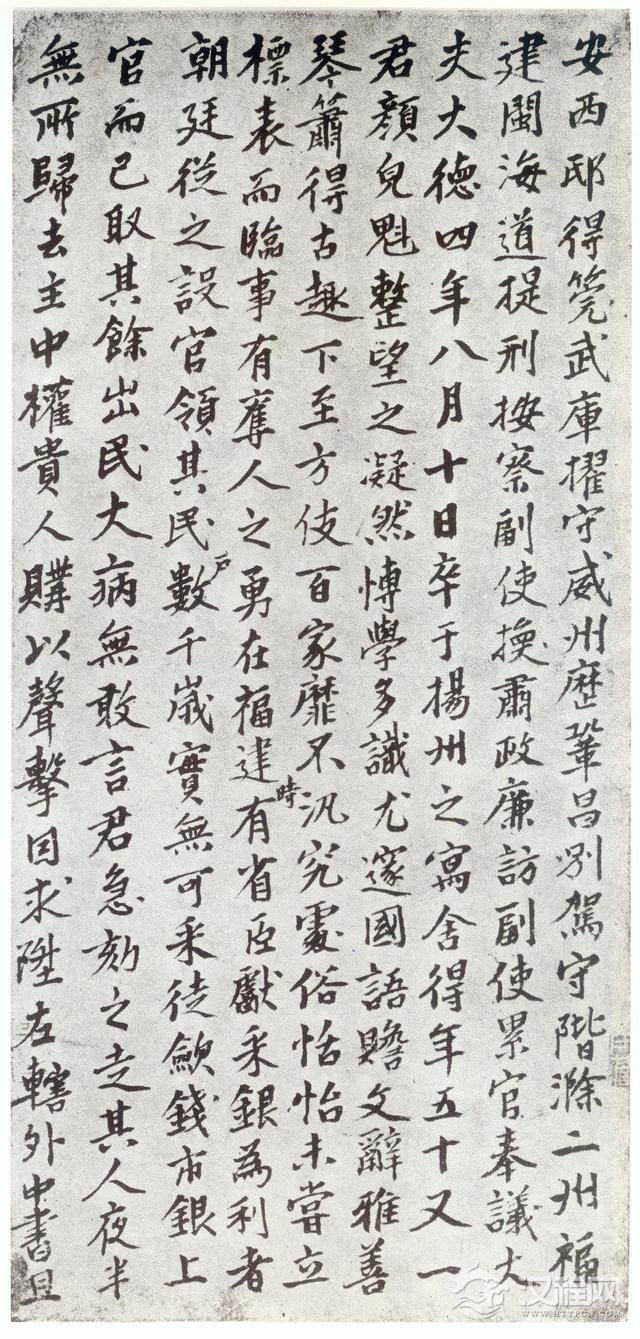 安西邸得筦武庫擢守威州歷鞏昌別駕守階滁二州福
建閩海道提刑按察副使換肅政廉訪副使累官奉議大
夫大德四年八月十日卒于揚州之寓舍得年五十又一
君顏皃魁整望之凝然博學多識尤邃國語贍文辭雅善
琴簫得古趣下至方伎百家靡不汎究處俗恬怡未嘗立
標表而臨事有奪人之勇在福建時有省臣獻采銀為利者
朝廷從之設官領其民數千戶歲實無可采徒斂錢市銀上
官而已取其餘出民大病無敢言君急劾之走其人夜半
無所歸去主中權貴人購以聲擊因求陞左轄外中書且
汉程网
WWW.HTTPCN.COM